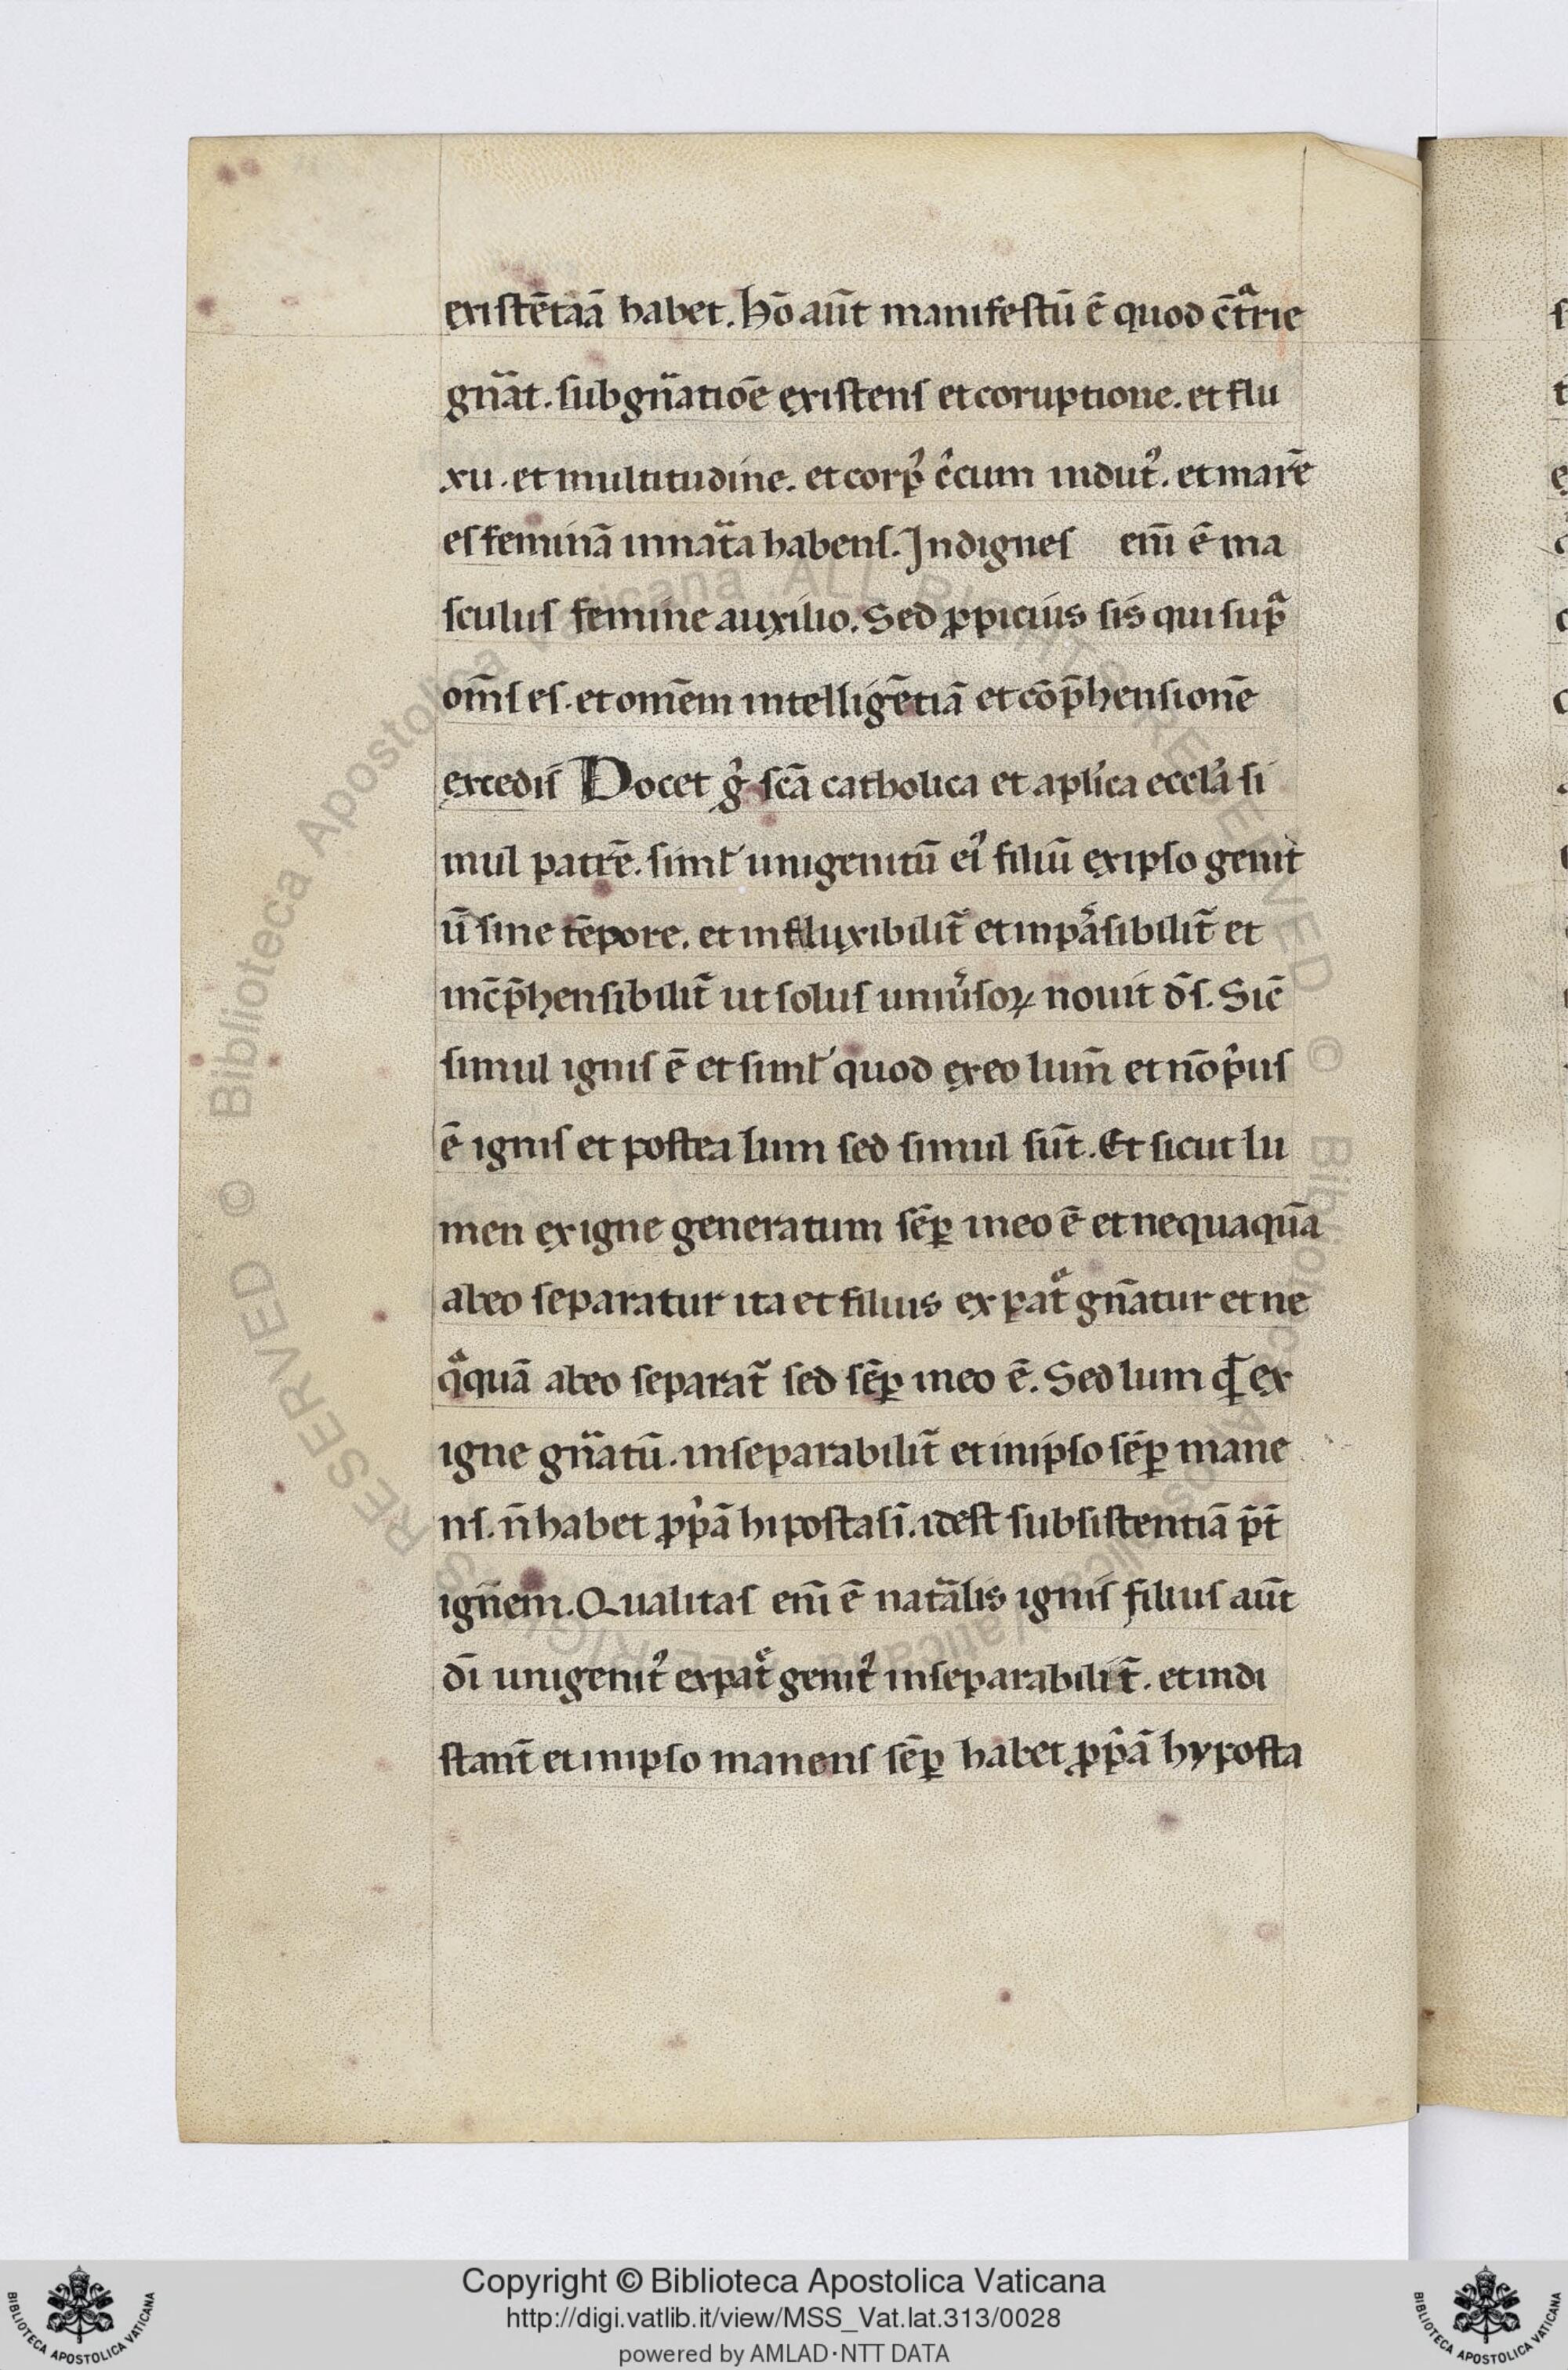 existe᷒tiā habet. hō aūt manifestū ē quod c̄trͣrie
gn̄at. sub gn̄atiōe existens et coruptione. et flu
xu. et multitudine. et corpꝰ c̄cum indutꝰ. et marē
es feminā in natᷓa habens. Indignes em̄ ē ma
sculus femine auxilio. Sed ꝓpicius sis qui supͣ
om̄s es. et omēm intelligētiā et cōp̄hensionē
excedis Docet gͦ sc̄a catholica et apl̓ica eccl̓a si
mul patrē. siml̓ unigenitū eiꝰ filiū ex ipso genit
ū sine tēpore. et influxibilit̄ et inpāsibilit̄ et
inc̄p̄hensibilit̄ ut solus uniu̓soꝝ nouit d̄s. Sic̄
simul ignis ē et siml̓ quod ex eo lum̄ et nō pͥus
ē ignis et postea lum sed simul sūt. Et sicut lu
men ex igne generatum sēꝑ in eo ē et nequaquā
ab eo separatur ita et filius ex patͤ gn̄atur et ne
qͣquā ab eo separat᷑ sed sēꝑ in eo ē. Sed lum qđ ex
igne gn̄atū. inseparabilit̄ et in ipso sēꝑ mane
ns. n̄ habet ꝓpͥā hipostasī. idest subsistentiā p̄t
ign̄em. Qualitas em̄ ē natᷓalis ignis filius aūt
dī unigenitꝰ ex patͤ genitꝰ inseparabilit̄. et indi
stant̄ et in ipso manens sēꝑ habet ꝓpͥā hyposta
Copyright © Biblioteca Apostolica Vaticana
http://digi.vatlib.it/view/MSS_Vat.lat.313/0028
powered by AMLAD·NTT DATA